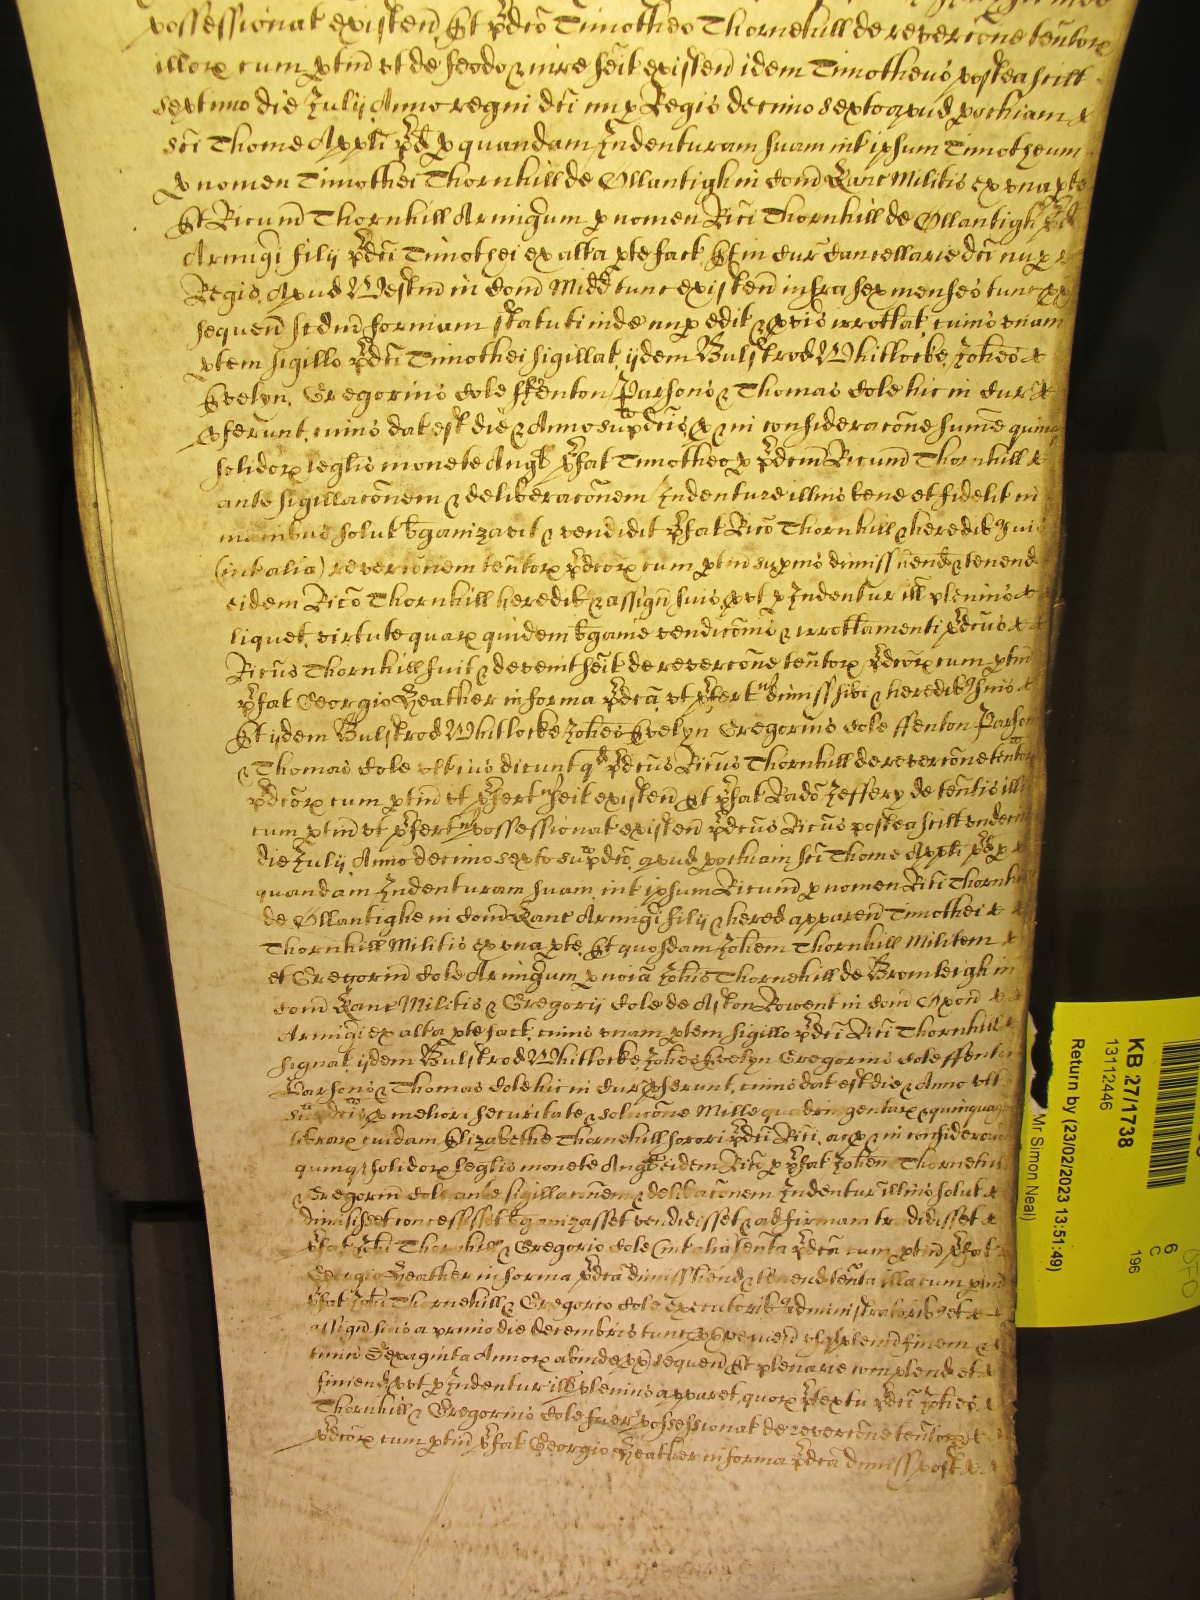 possessionat existen Et pdco Timotheo Thornehull de revercone tentorz
illorz cum ptin vt de feodo & iure seit existen idem Timotheus postea scilt
septimo die Julij Anno regni dci nup Regis decimo sexto apud pochiam &
sci Thome Appli pd p quandam Indenturam suam int ipsum Timotheum
p nomen Timothei Thornhill de Ollantigh in Com Kanc Militis ex vna pte
Et Ricum Thornhill Armigum p nomen Rici Thornhill de Ollantigh pd
Armigi filij pdci Timothei ex altra pte fact Et in Cur Cancellarie dci nup
Regis Apud Westm in Com Midd tunc existen infra sex menses tunc px
sequen scdm formam statuti inde nup edit & pvis irrotlat cuius vnam
ptem sigillo pdci Timothei sigillat ijdem Bulstrod Whitlocke Johes &
Evelyn Gregorius Cole ffenton Parsons & Thomas Cole hic in Cur &
pferunt cuius dat est die & Anno supdcis p & in consideracone summe quinq
solidorz leglis monete Angl pfat Timotheo p pdcm Ricum Thornhill &
ante sigillaconem & deliberaconem Indenture illius bene et fidelit in
manibus solut bganizavit & vendidit pfat Rico Thornhill & heredib suis
(int alia) revercionem tentorz pdcorz cum ptin supius dimiss hend & tenend
eidem Rico Thornhill heredib & assign suis put p Indentur ill plenius &
liquet virtute quarz quidem bganie vendiconis & irrotlamenti pdcus &
Ricus Thornhill fuit & devenit seit de revercone tentorz pdcorz cum ptin
pfat Georgio Heather in forma pdca vt pfert dimiss sibi & heredib suis &
Et ijdem Bulstrod Whitlocke Johes Evelyn Gregorius Cole ffenton Parson
& Thomas Cole vltius dicunt qd pdcus Ricus Thornhill de revercone tentor
pdcorz cum ptin vt pfert seit existen Et pfat Rado Jeffery de tentis illis
cum ptin vt pfert possessionat existen pdcus Ricus postea scilt vndecimo
die Julij Anno decimo sexto supdco apud pochiam sci Thome Appli pd p
quandam Indenturam suam int ipsum Ricum p nomen Rici Thornhill
de Ollantighe in Com Kanc Armigi filij & hered apparen Timothei &
Thornhill Militis ex vna pte Et quosdam Johem Thornhill Militem &
et Gregorium Cole Armigum p noia Johis Thornehill de Bromleigh in
Com Kanc Militis & Gregorij Cole de Aston Rowent in Com Oxon &
Armigi ex altra pte fact cuius vnam ptem sigillo pdci Rici Thornhill
signat ijdem Bulstrod Whitlocke Johes Evelyn Gregorius Cole ffenton
Parsons & Thomas Cole hic in Cur pferunt cuius dat est die & Anno vlt
supdcis p meliori securitate & solucone Mille quadringentarz & quinquag
librarz cuidam Elizabethe Thornehill sorori pdci Rici acp & in consideracon
quinq solidorz leglis monete Angl eidem Rico p pfat Johem Thornehill
& Gregorium Cole ante sigillaconem & delibaconem Indentur illius solut &
dimisisset concessisset bganizasset vendidisset & ad firmam tradidisset &
pfat Johi Thornhill & Gregorio Cole (int alia) tenta pdca cum ptin pfat
Georgio Heather in forma pdca dimiss hend & tenend tenta illa cum ptin
pfat Johi Thornehill & Gregorio Cole executorib administratorib et &
assign suis a primo die Decembris tunc px preterit vsq plenum finem &
tmini Sexaginta Annorz abinde px sequen Et plenarie complend et &
finiend put p Indentur ill plenius apparet quorz ptextu pdci Johes
Thornhill & Gregorius Cole fuer possessionat de revercone tentorz &
pdcorz cum ptin pfat Georgio Heather in forma pdca dimiss post &
KB 27/1738
13112446
Return by (23/02/2023 13:51:49)
Mr Simon Neal)
6
C
196